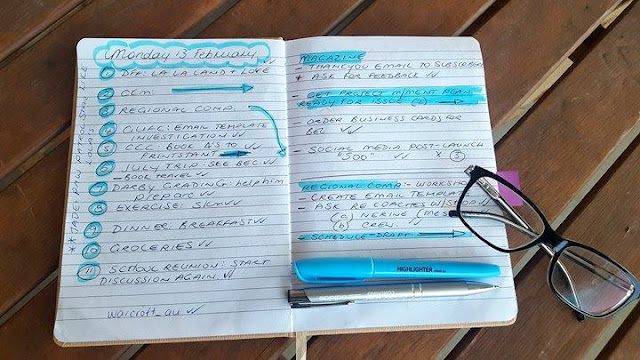 Monday 13 February
1 DFF: LA LA LAND + LOVE
2 CLM:
3 REGIONAL COMP.
4 EMAIL TEMPLATE
INVESTIGATION
5 CCC BOOK N'S TO
PRINTSTANT
6 JULY TRIP: SEE BEC
- BOOK TRAVEL
7 DARBY GRADING: help him
prepare
8 EXERCISE: 5KM
9 DINNER: BREAKFAST
10 GROCERIES
11 SCHOOL REUNION: START
DISCUSSION AGAIN.
warcroft_au
MAGAZINE
- THANKYOU EMAIL TO SUBSCRIBERS
* ASK FOR FEEDBACK
- GET PROJECT M/MENT PLAN
READY FOR ISSUE (2)
- ORDER BUSINESS CARDS FOR
BEC
- SOCIAL MEDIA POST-LAUNCH
"500" x 3
REGIONAL COMP:- WORKSHOP
- CREATE EMAIL TEMPLATE
- ASK RE COACHES W/SHOP
(a) NERINE
(b) CREW
- SCHEDULE-DRAFT
HIGHLIGHTER